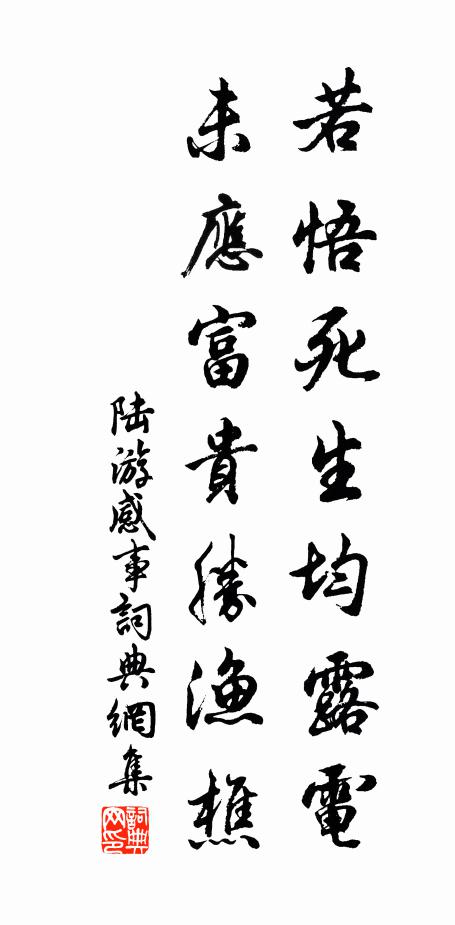 若悟死生均露電
未應富貴勝漁樵
陸游感事詞典網集
詞典網印